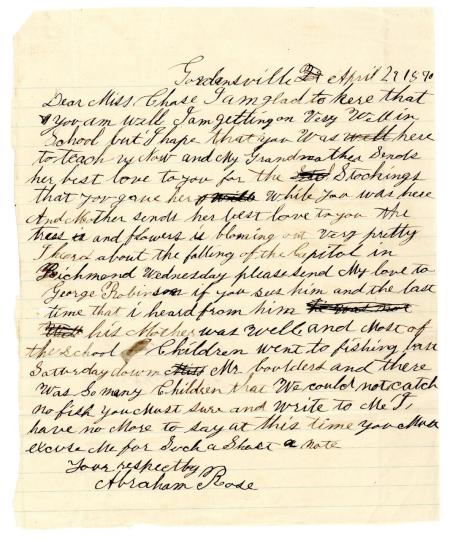 Gordensville April 29 1870
Dear Miss Chase I am glad to here that
you am well I am getting on Very Well in
School but I hope that you Was here
to teach us Now and My Grandmother Sends
her best love to you for the Stockings
that you gave her While you was here
And Mother sends her best love to you the
tress is and flowers is bloming out very pretty
I heard about the falling of the Capitol in
Richmond Wednesday please send My love to
George Robinson if you sees him and the last
time that i heard from him he was not
his Mother was Well and Most of
the School Children went to fishing last
Saturday down Mr boulders and there
Was So many Children that We could not catch
no fish you Must sure and write to Me I,
have no More to say at this time you Must
excuse Me for Such a Short a note
Your respectby
Abraham Rose